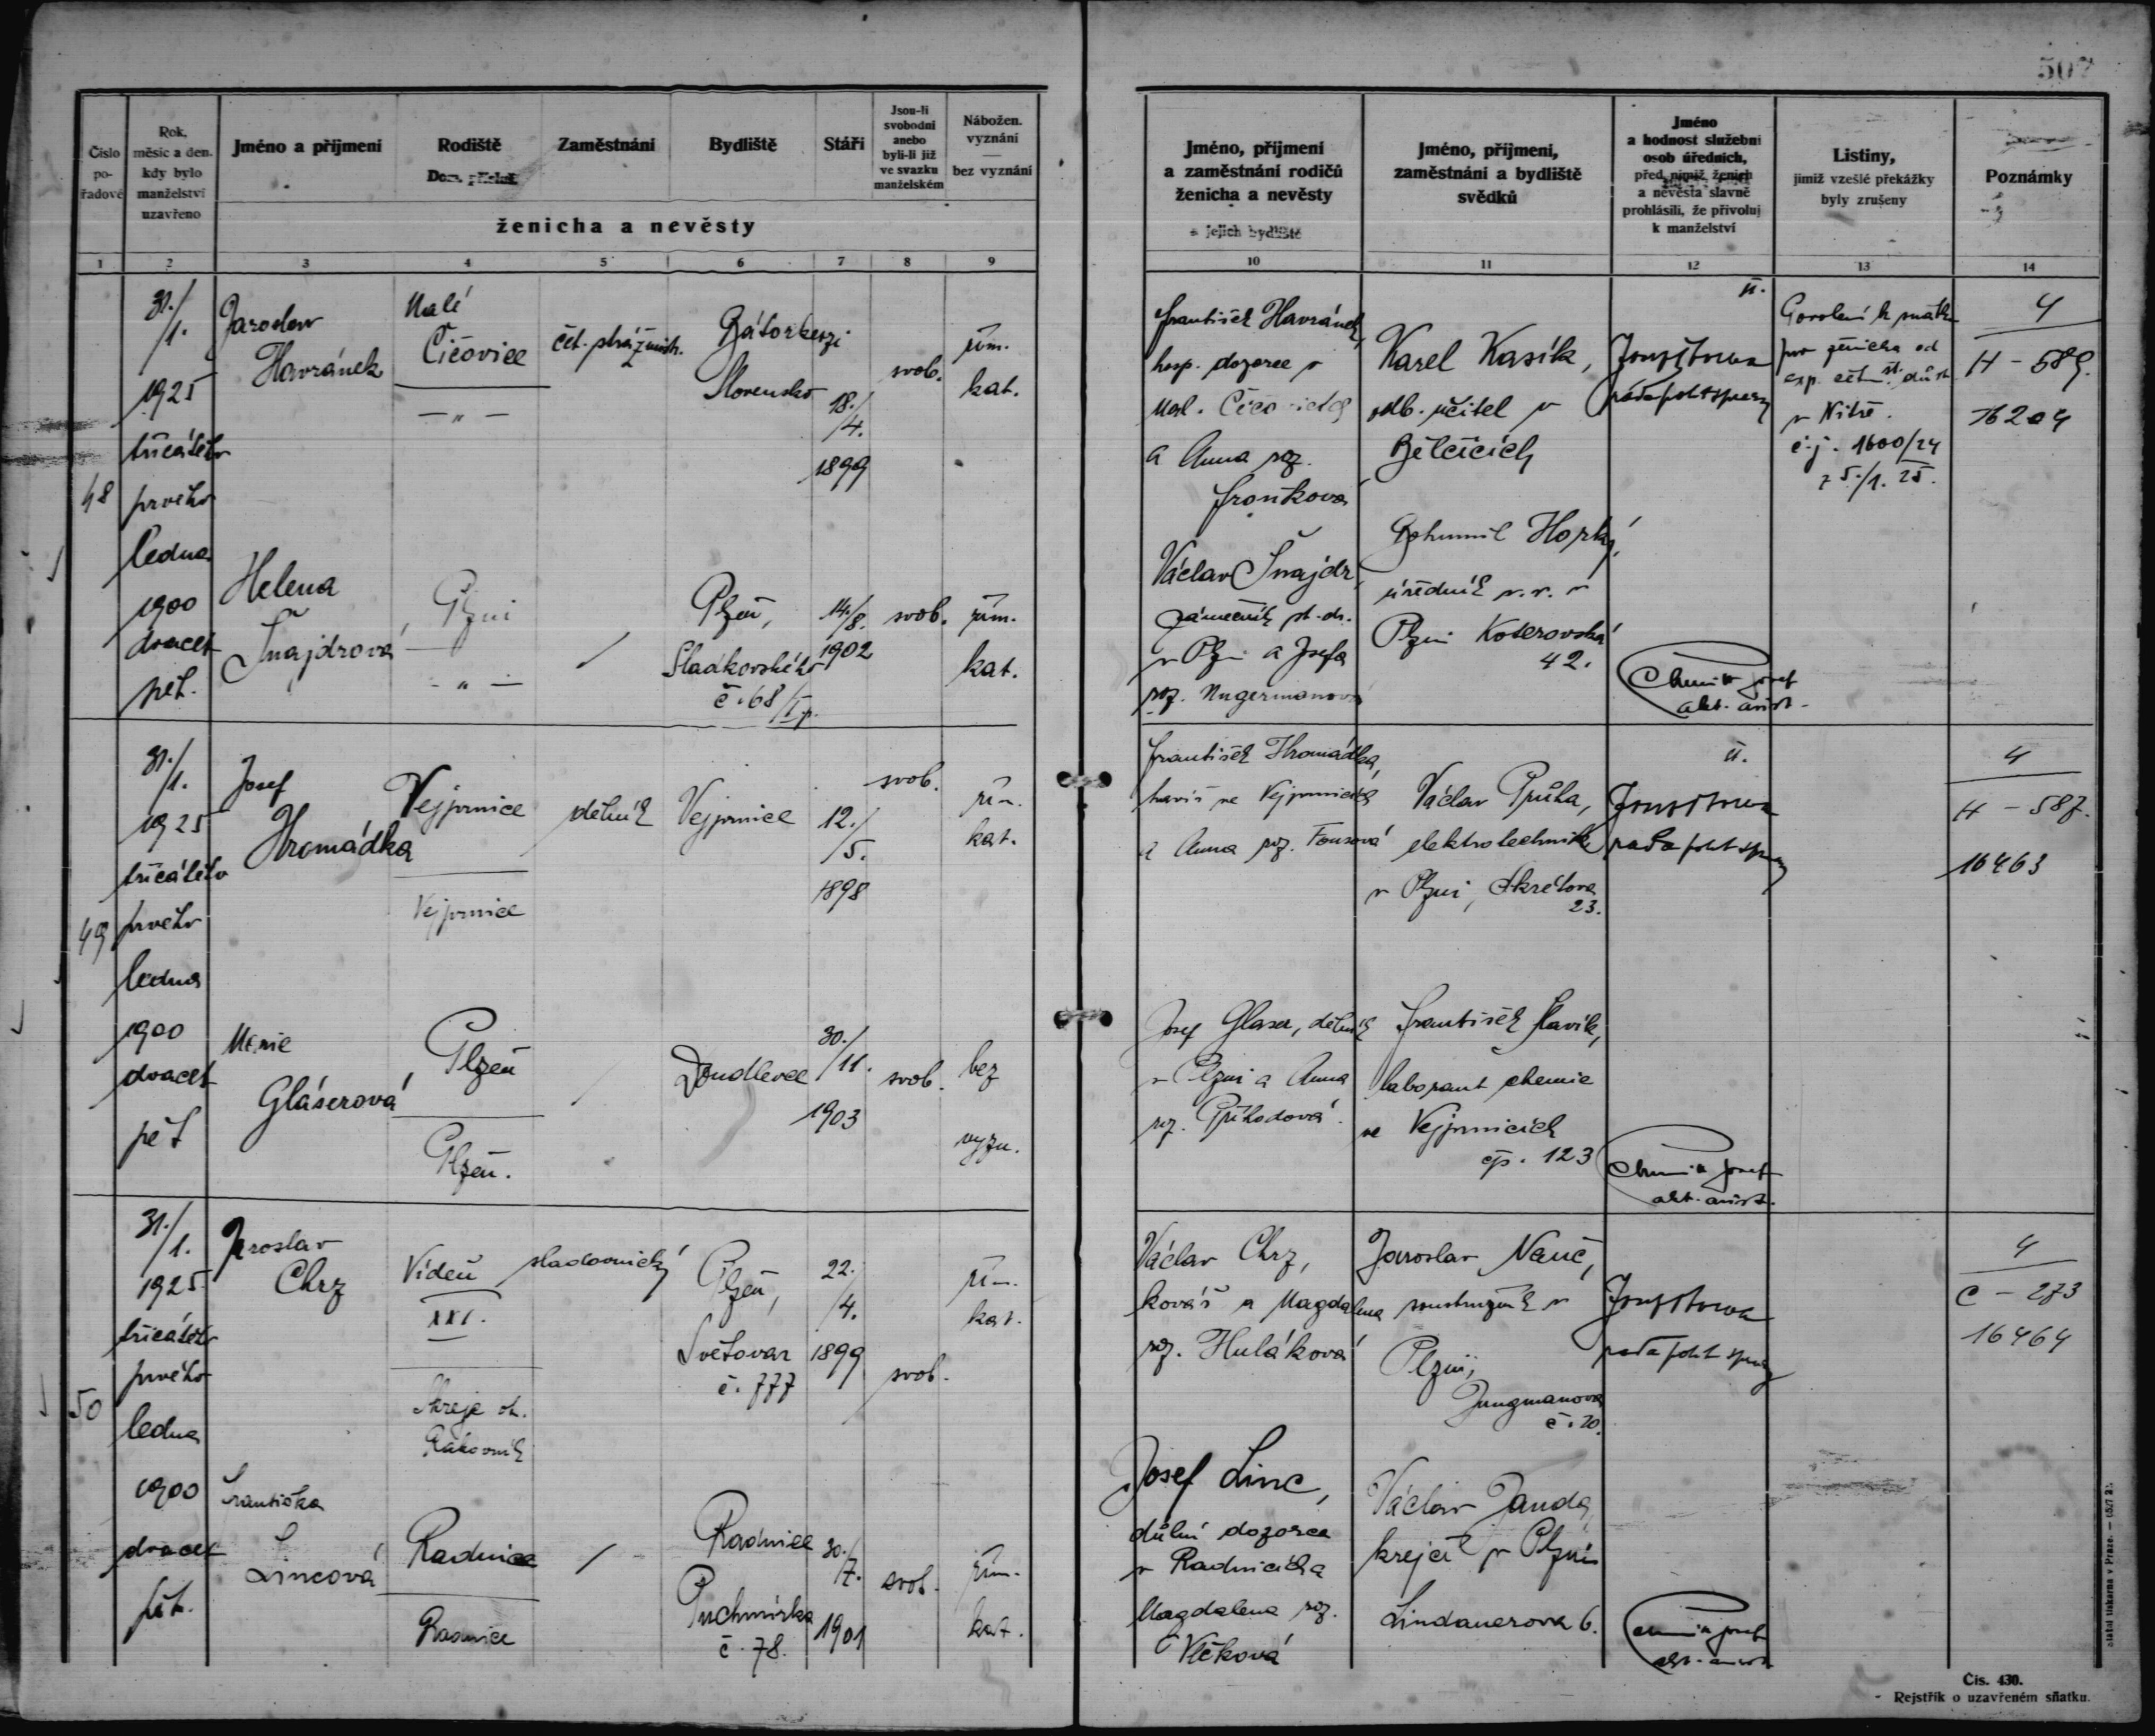 507
Číslo pořadové
Rok, měsíc a den, kdy bylo manželství uzavřeno
Jméno a příjmení
Rodiště
Zaměstnání
Bydliště
Stáří
Jsou-li svobodni anebo byli-li již ve svazku manželském
Nábožen. vyznání — bez vyznání
ženicha a nevěsty
Jméno, příjmení a zaměstnání rodičů ženicha a nevěsty
a jejich bydliště
Jméno, příjmení, zaměstnání a bydliště svědků
Jméno a hodnost služební osob úředních, před nimiž ženich a nevěsta slavně prohlásili, že přivolují k manželství
Listiny, jimiž vzešlé překážky byly zrušeny
Poznámky
1 2 3 4 5 6 7 8 9 10 11 12 13 14
48
31./1.
1925
třicátého
prvého
ledna
1900
dvacet
pět.
Jaroslav
Havránek
Malé
Čičovice
— „ —
čet. strážmistr.
Bátorkeszi
Slovensko
18./4.
1899
svob.
řím.
kat.
František Havránek,
hosp. dozorce v
Mal. Čičovicích
a Anna roz.
Karel Kasík,
odb. učitel v
Bělčicích
rada polit. správy
Povolení k sňatku
pro ženicha od
v Nitře.
č.j. 1600/24
z 5./1. 25.
4
H - 589.
16204
Helena
Šnajdrová
Plzni
- „ -
Plzeň,
Sladkovského
č. 68/I p.
14./8.
1902
svob.
řím.
kat.
Václav Šnajdr,
zámečník st. dr.
v Plzni a Josefa
roz. Ungermanová
Bohumil Horký,
úředník v. v. v
Plzni Koterovská
42.
49
31./1.
1925
třicátého
prvého
ledna
1900
dvacet
pět
Josef
Hromádka
Vejprnice
Vejprnice
dělník
Vejprnice
12./5.
1898
svob.
řím.
kat.
František Hromádka,
havíř ve Vejprnicích
a Anna roz. Fousová
Václav Průha,
elektrotechnik
v Plzni, Skrétova
23.
rada polit. správy
4
H - 587.
16463
Marie
Gláserová
Plzeň
Plzeň.
Doudlevce
30./11.
1903
svob.
bez
vyzn.
Josef Glaser, dělník
v Plzni a Anna
roz. Příhodová.
František Slavík,
laborant chemie
ve Vejprnicích
čp. 123
50
31./1.
1925
třicátého
prvého
ledna
1900
dvacet
pět.
Jaroslav
Chrz
Vídeň
XXI.
Skreje ok.
Rakovník
sladovnický
Plzeň,
Světovar
č. 777
22./4.
1899
svob.
řím.
kat.
Václav Chrz,
kovář a Magdalena
roz. Huláková
Jaroslav Nauč,
soustružník v
Plzni,
Jungmanova
č. 20.
rada polit. správy
4
C - 273
16464
Františka
Lincová
Radnice
Radnice
Radnice
Puchmírka
č. 78.
30./7.
1901
svob.
řím.
kat.
Josef Linc,
důlní dozorce
v Radnicích a
Magdalena roz.
Vlčková
Václav Janda,
krejčí v Plzni
Lindauerova 6.
Čís. 430.
Rejstřík o uzavřeném sňatku.